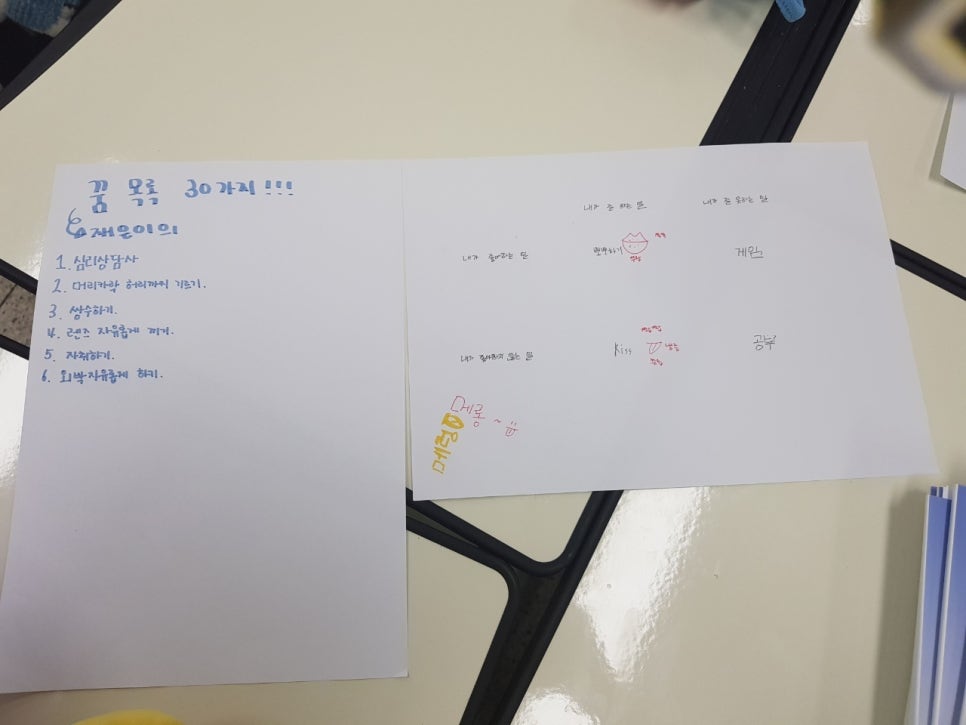 꿈 목록 30가지!!!
재은이의
1. 심리상담사
2. 머리카락 허리까지 기르기.
3. 쌍수하기.
4. 렌즈 자유롭게 끼기.
5. 자취하기.
6. 외박 자유롭게 하기.
내가 잘 하는 것
내가 잘 못하는 것
내가 좋아하는 것
뽀뽀하기
게임
내가 좋아하지 않는 것
Kiss
공부
메롱~
메렁